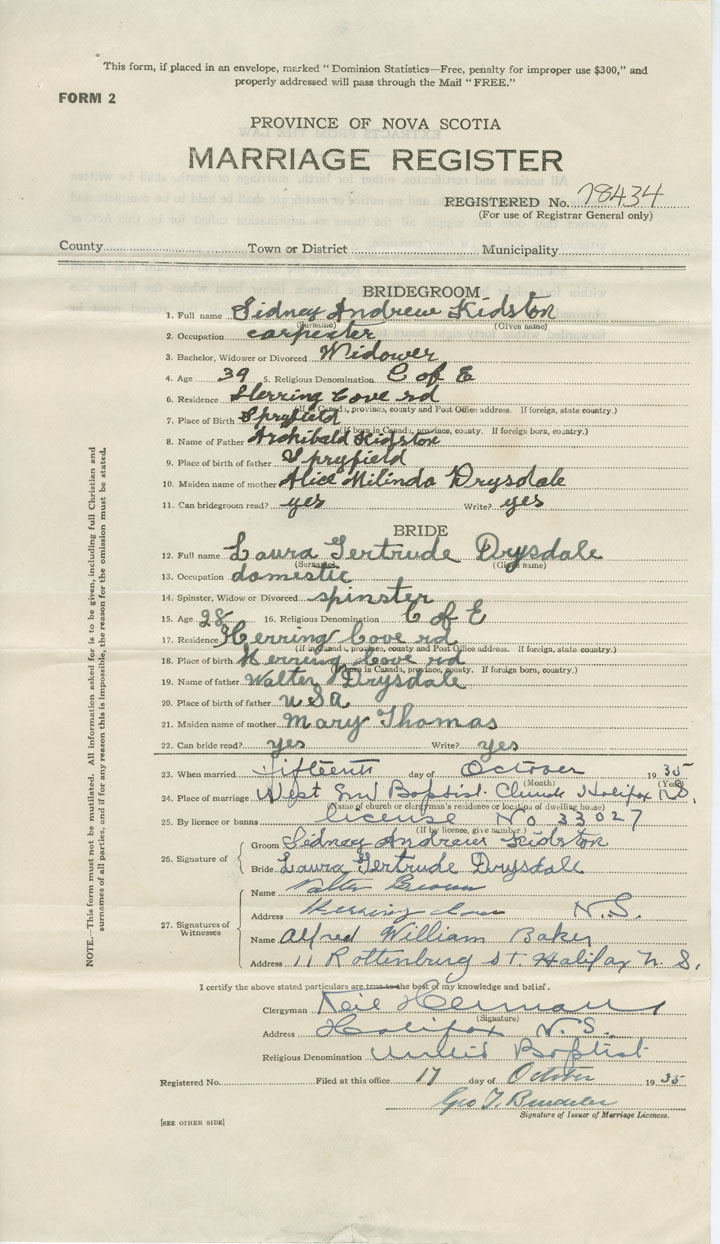 This form, if placed in an envelope, marked "Dominion Statistics—Free, penalty for improper use $300," and
properly addressed will pass through the Mail "FREE."
FORM 2
PROVINCE OF NOVA SCOTIA
MARRIAGE REGISTER
REGISTERED No. 78434
(For use of Registrar General only)
County Town or District Municipality
BRIDEGROOM
1. Full name Sidney Andrew Kidston
(Surname) (Given name)
2. Occupation carpenter
3. Bachelor, Widower or Divorced Widower
4. Age 39 5. Religious Denomination C of E
6. Residence Herring Cove rd
(If in Canada, province, county and Post Office address. If foreign, state country.)
7. Place of Birth Spryfield
(If born in Canada, province, county. If foreign born, country.)
8. Name of Father Archibald Kidston
9. Place of birth of father Spryfield
10. Maiden name of mother Alice Milinda Drysdale
11. Can bridegroom read? yes Write? yes
BRIDE
12. Full name Laura Gertrude Drysdale
(Surname) (Given name)
13. Occupation domestic
14. Spinster, Widow or Divorced spinster
15. Age 28 16. Religious Denomination C of E
17. Residence Herring Cove rd
(If in Canada, province, county and Post Office address. If foreign, state country.)
18. Place of birth Herring Cove rd
(If born in Canada, province, county. If foreign born, country.)
19. Name of father Walter Drysdale
20. Place of birth of father USA
21. Maiden name of mother Mary Thomas
22. Can bride read? yes Write? yes
23. When married fifteenth day of October 1935
(Month) (Year)
24. Place of marriage West End Baptist Church Halifax N.S.
(Name of church or clergyman's residence or location of dwelling house)
25. By licence or banns license No 33027
(If by licence, give number.)
26. Signature of
Groom Sidney Andrew Kidston
Bride Laura Gertrude Drysdale
27. Signatures of Witnesses
Name Walter Brown
Address Herring Cove N.S.
Name Alfred William Baker
Address 11 Rottenburg St. Halifax N.S.
I certify the above stated particulars are true to the best of my knowledge and belief.
Clergyman Neil Herman
(Signature)
Address Halifax N.S.
Religious Denomination United Baptist
Registered No. Filed at this office 17 day of October 1935
Geo T.
Signature of Issuer of Marriage Licences.
[SEE OTHER SIDE]
NOTE.—This form must not be mutilated. All information asked for is to be given, including full Christian and
surnames of all parties, and if for any reason this is impossible, the reason for the omission must be stated.